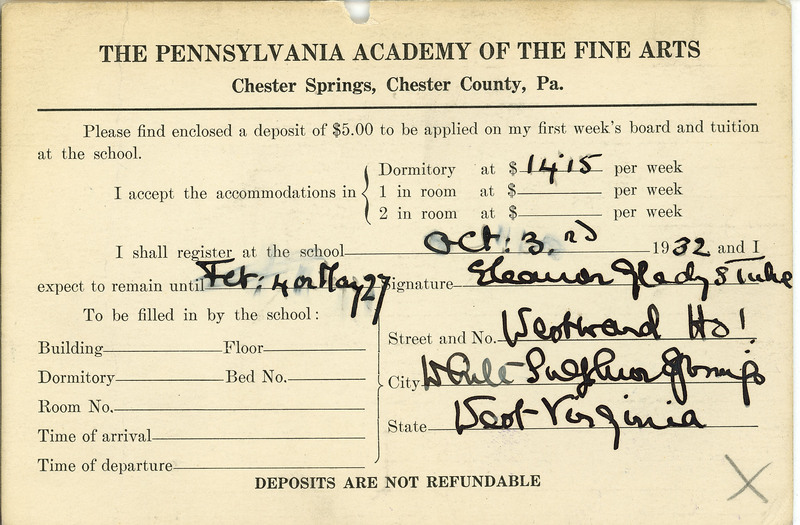 THE PENNSYLVANIA ACADEMY OF THE FINE ARTS
Chester Springs, Chester County, Pa.
Please find enclosed a deposit of $5.00 to be applied on my first week's board and tuition
at the school.
I accept the accommodations in
Dormitory at $ 14.15 per week
1 in room at $ per week
2 in room at $ per week
I shall register at the school Oct: 3.rd 1932 and I
expect to remain until Feb: 4 or May 27 Signature Eleanor Gladys
To be filled in by the school:
Street and No. Westward Ho!
Building Floor
Dormitory Bed No.
City White Sulphur Springs
Room No.
State West Virginia
Time of arrival
Time of departure
DEPOSITS ARE NOT REFUNDABLE
X